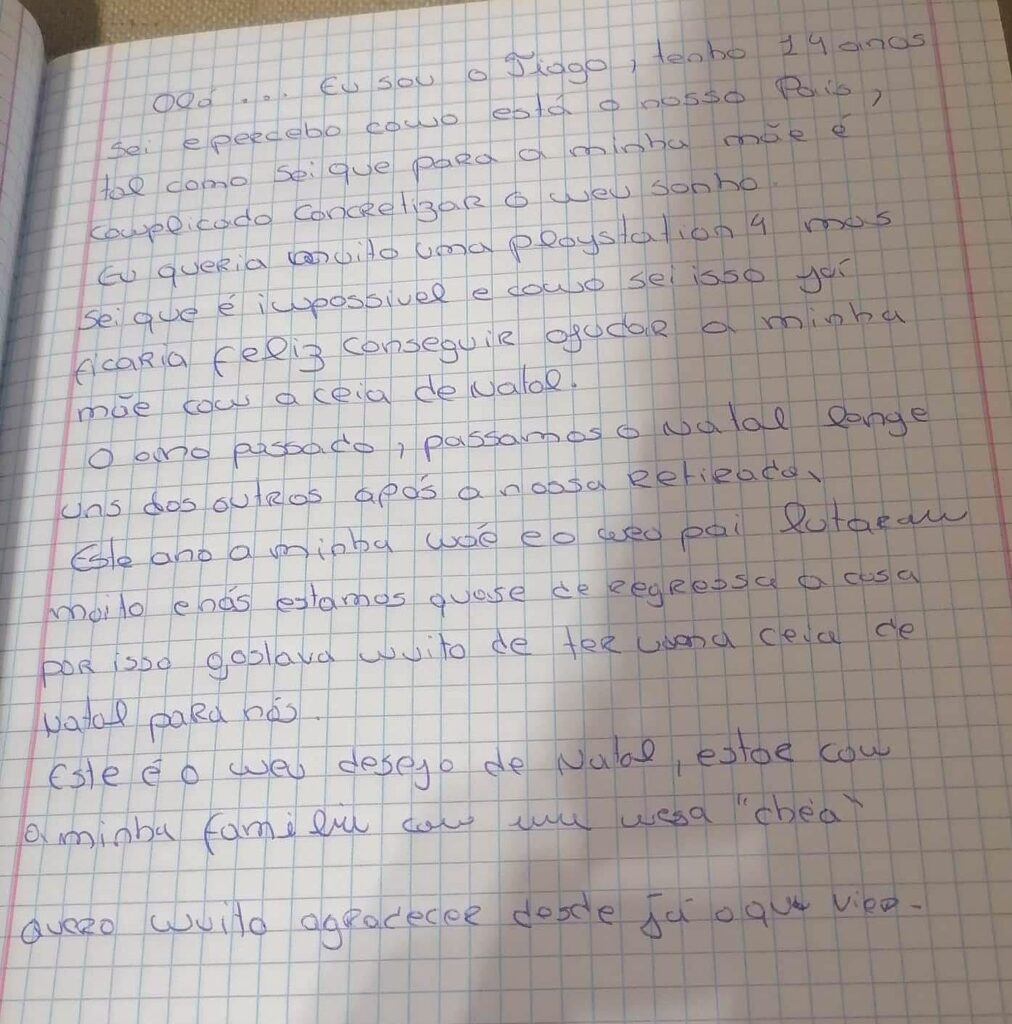 Olá ... Eu sou o Tiago, tenho 14 anos
sei e percebo como está o nosso País,
tal como sei que para a minha mãe é
complicado concretizar o meu sonho.
Eu queria muito uma playstation 4 mas
sei que é impossivel e como sei isso já
ficaria feliz conseguir ajudar a minha
mãe com a ceia de Natal.
O ano passado, passamos o Natal longe
uns dos outros após a nossa retirada.
Este ano a minha mãe e o meu pai lutaram
muito e nós estamos quase de regresso a casa
por isso gostava muito de ter uma ceia de
Natal para nós.
Este é o meu desejo de Natal, estar com
a minha familia com uma mesa "cheia"
quero muito agradecer desde já o que vier.